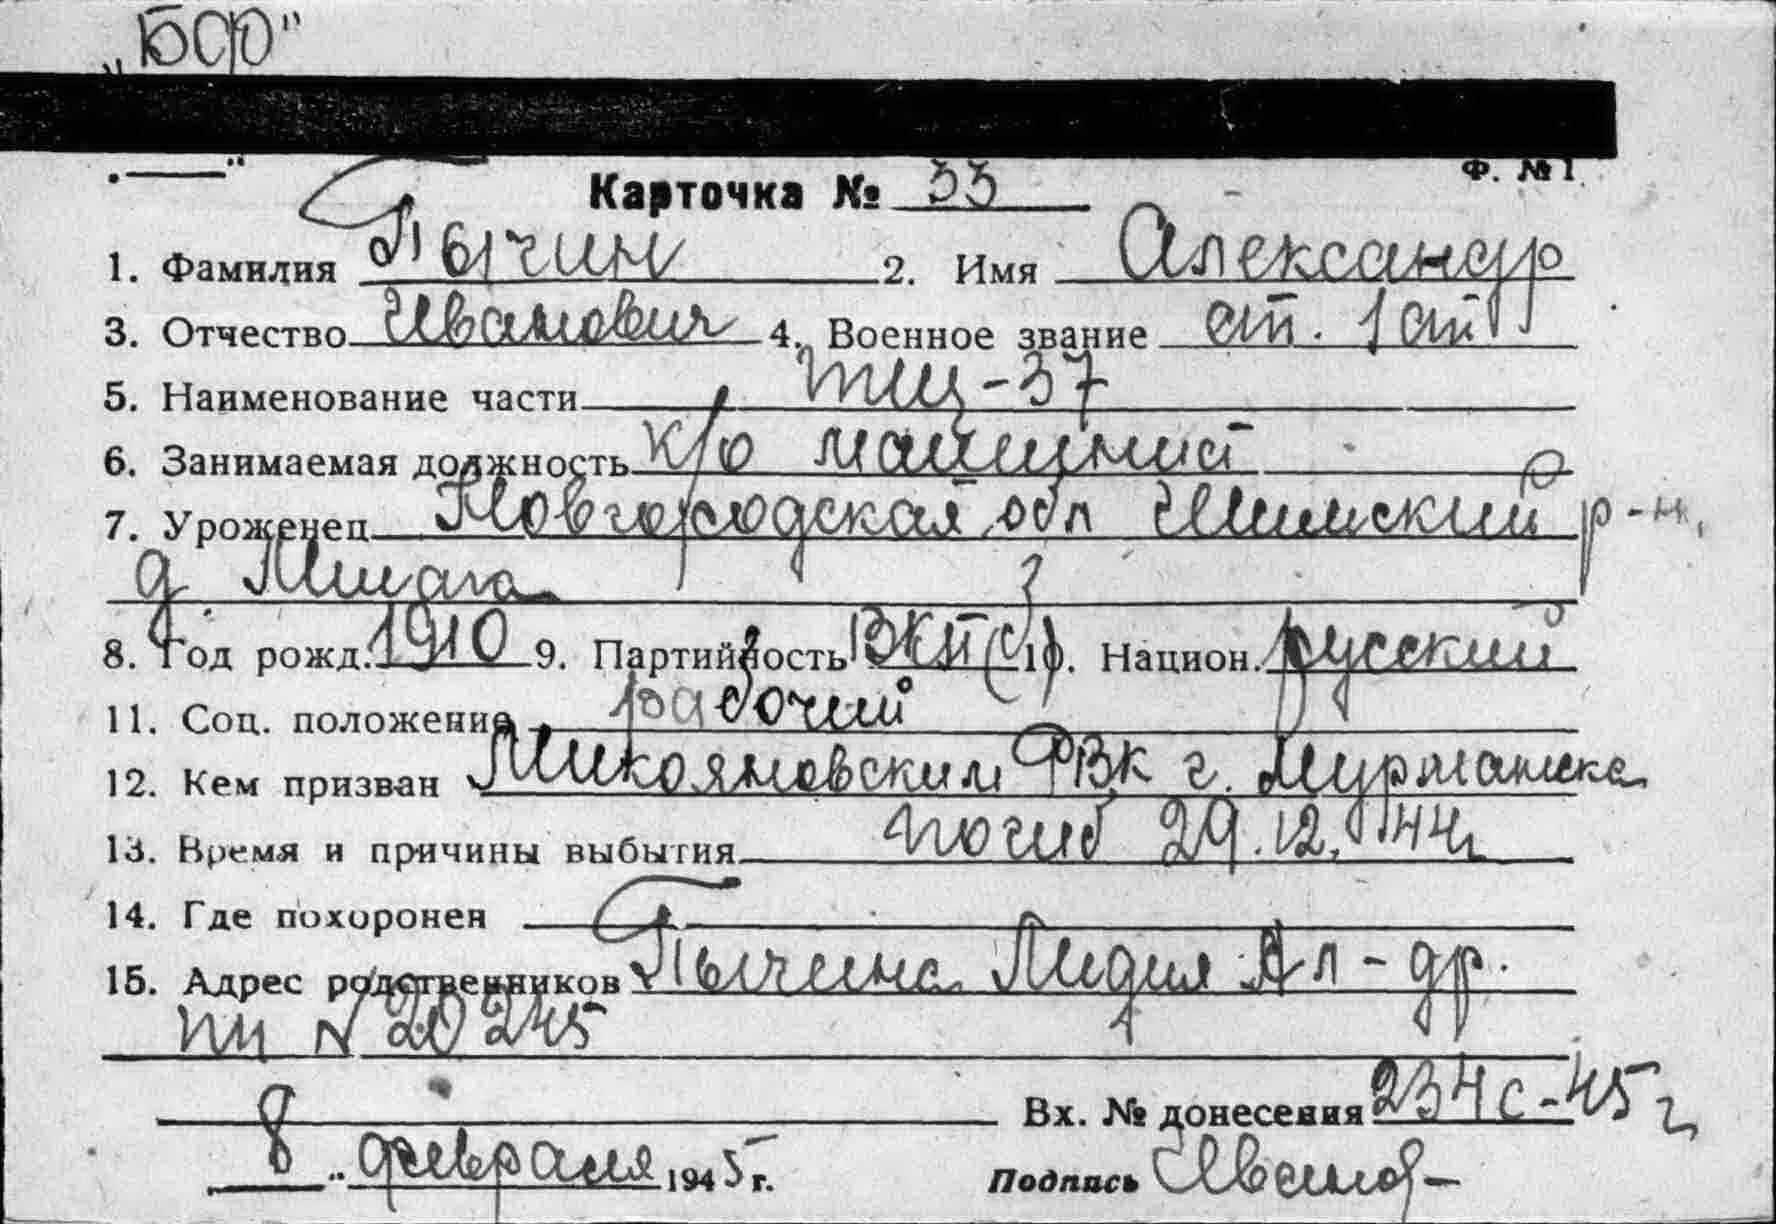 „БСФ"
Ф. №1
Карточка № 33
1. Фамилия Пычин 2. Имя Александр
3. Отчество Иванович 4. Военное звание ст. 1 ст
5. Наименование части тщ-37
6. Занимаемая должность к/о машинист
7. Уроженец Новгородская обл Шимский р-н,
д Мшага
8. Год рожд. 1910 9. Партийность ВКП(б) 10. Национ. русский
11. Соц. положение рабочий
12. Кем призван Микояновским РВК г. Мурманска
13. Время и причины выбытия погиб 29.12.44г
14. Где похоронен
15. Адрес родственников Пычина Лидия Ал-др.
пп № 20245
Вх. № донесения 234с-45г
8 " февраля 1945 г. Подпись Иванов